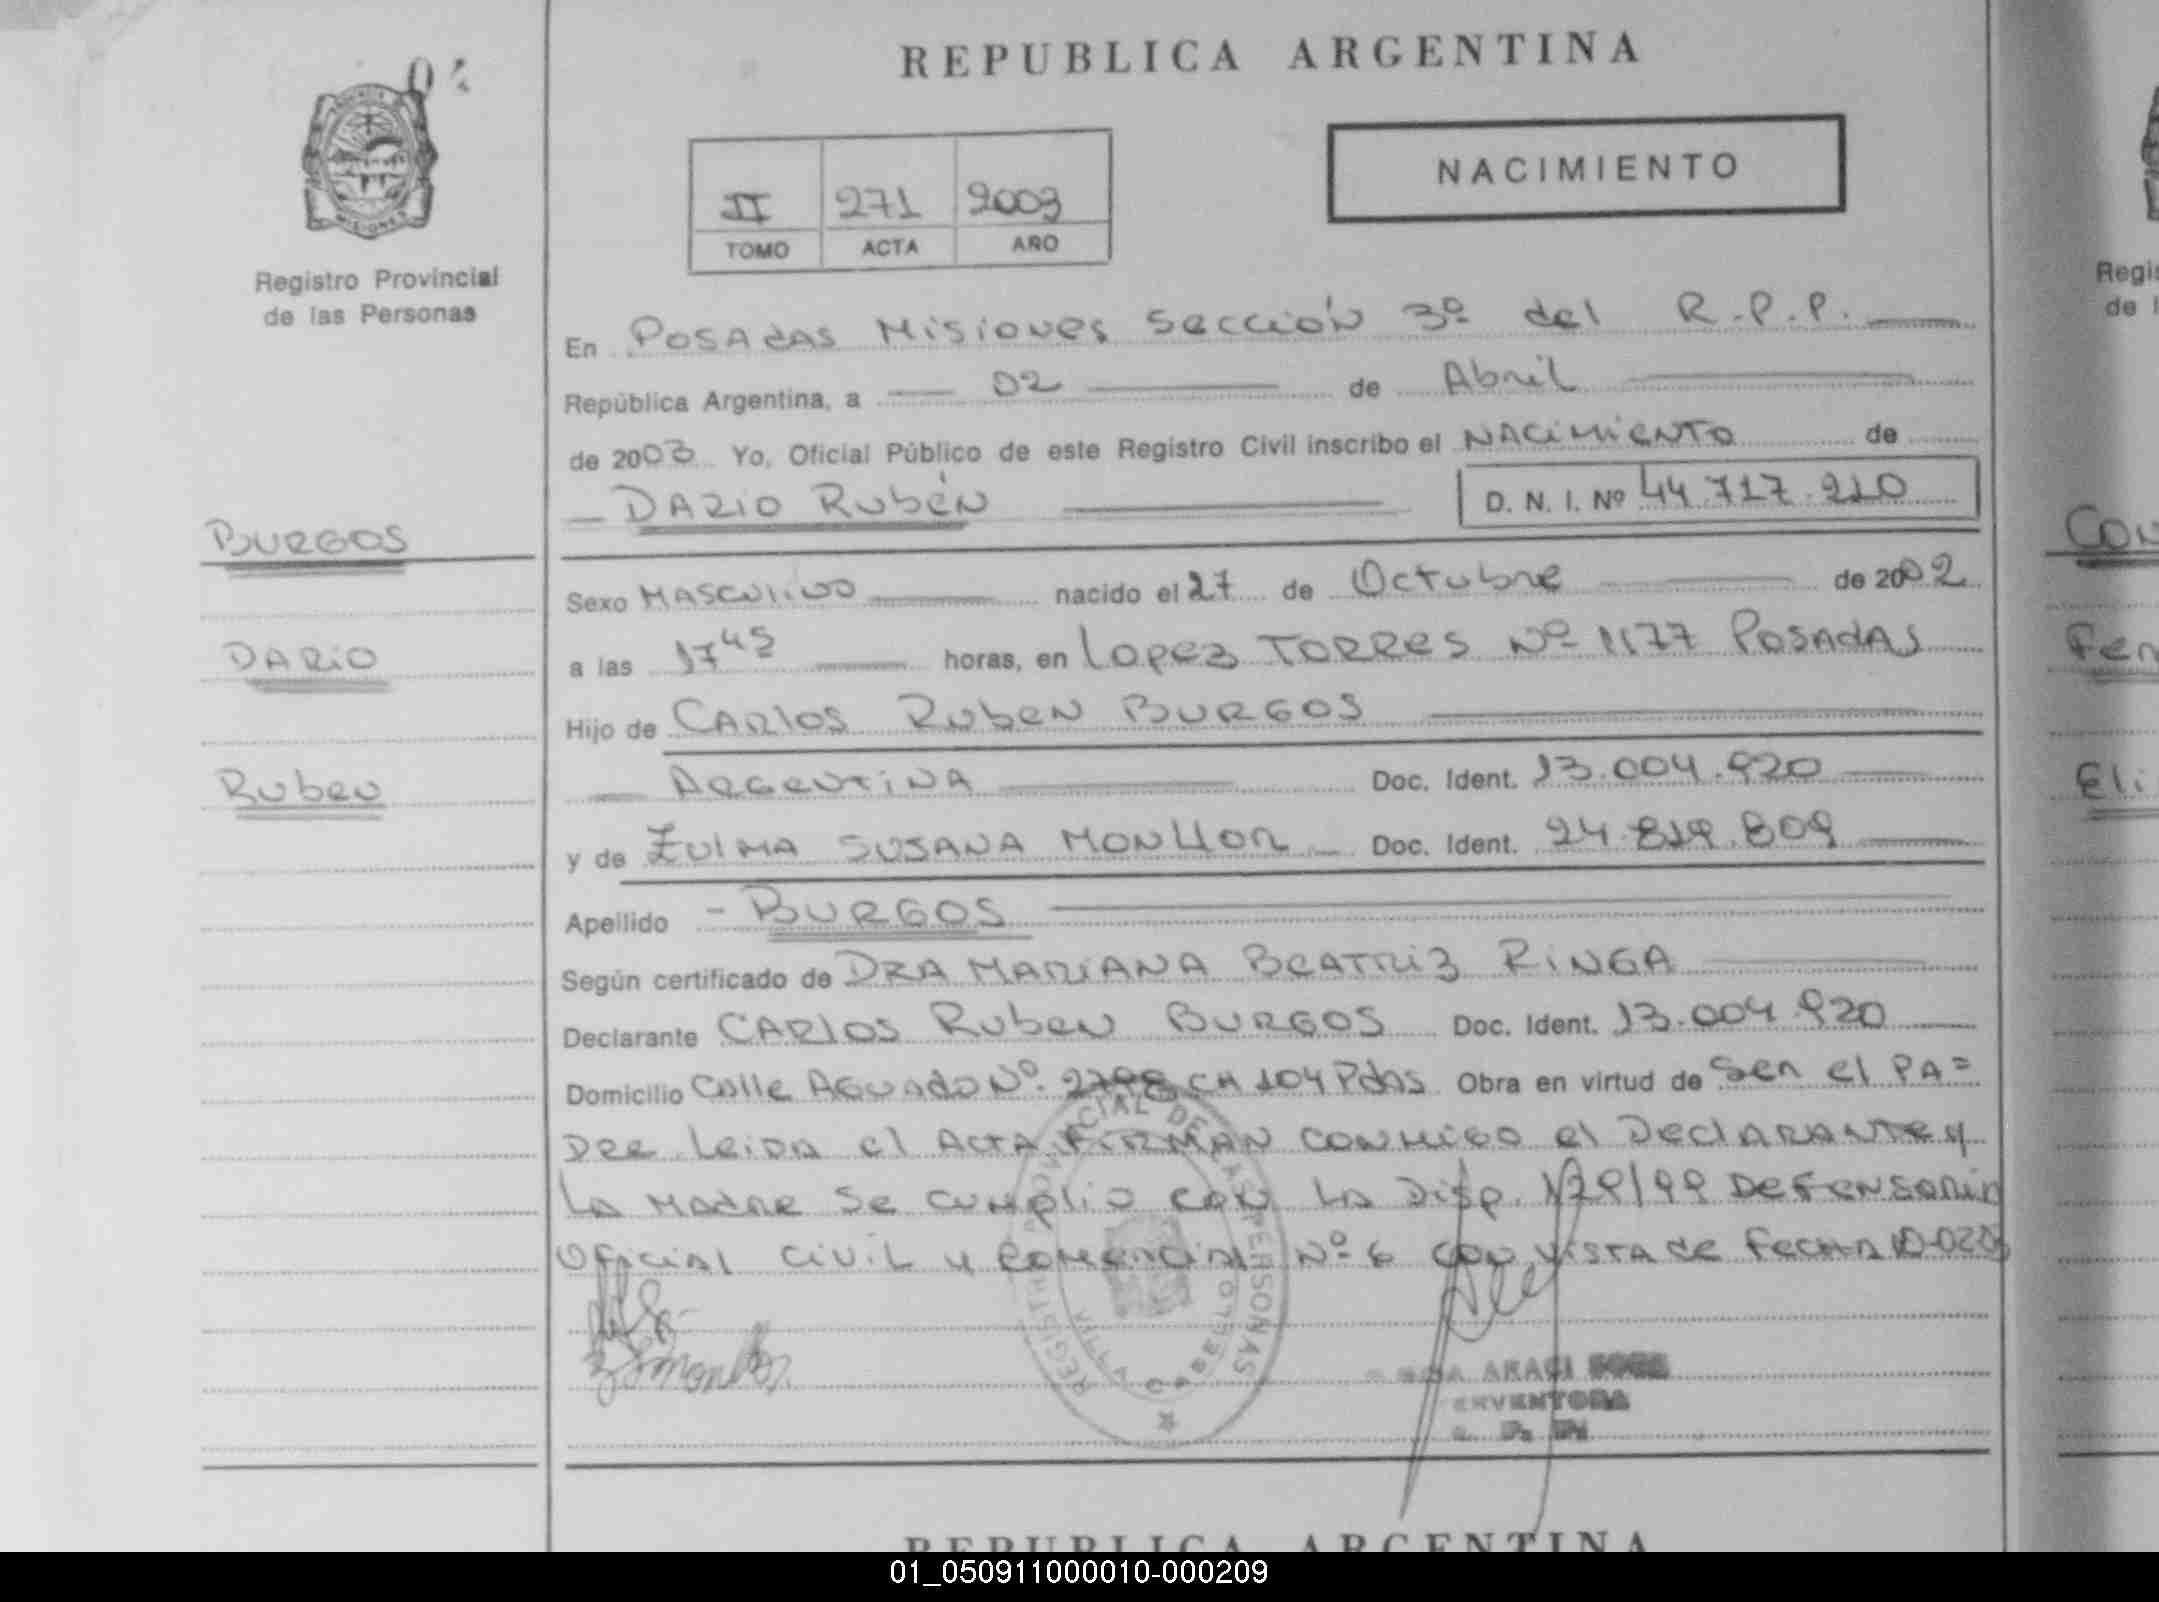 REPUBLICA ARGENTINA
NACIMIENTO
II 271 2003
TOMO ACTA AÑO
Registro Provincial
de las Personas
En Posadas Misiones Sección 3º del R.P.P.
República Argentina, a 02 de Abril
de 2003 Yo, Oficial Público de este Registro Civil inscribo el Nacimiento de
Dario Rubén D. N. I. Nº 44.717.210
BURGOS
Dario
Ruben
Sexo Masculino nacido el 27 de Octubre de 2002
a las 17 45 horas, en Lopez Torres Nº 1177 Posadas
Hijo de Carlos Ruben Burgos
Argentina Doc. Ident. 13.004.920
y de Zulma Susana Monllor Doc. Ident. 24.819.809
Apellido - Burgos
Según certificado de Dra Mariana Beatriz Ringa
Declarante Carlos Ruben Burgos Doc. Ident. 13.004.920
Domicilio Calle Aguado Nº 2798 CH 104 Pdas Obra en virtud de Ser el Pa=
dre Leida el Acta Firman conmigo el Declarante y
la Madre Se cumplio con la Disp. 129/99 Defensoria
Oficial Civil y Comercial Nº 6 con vista de fecha
REGISTRO PROVINCIAL DE LAS PERSONAS
ARACI
ERVENTORA
REPUBLICA ARGENTINA
Regis
de l
Con
Fer
Eli
01_050911000010-000209